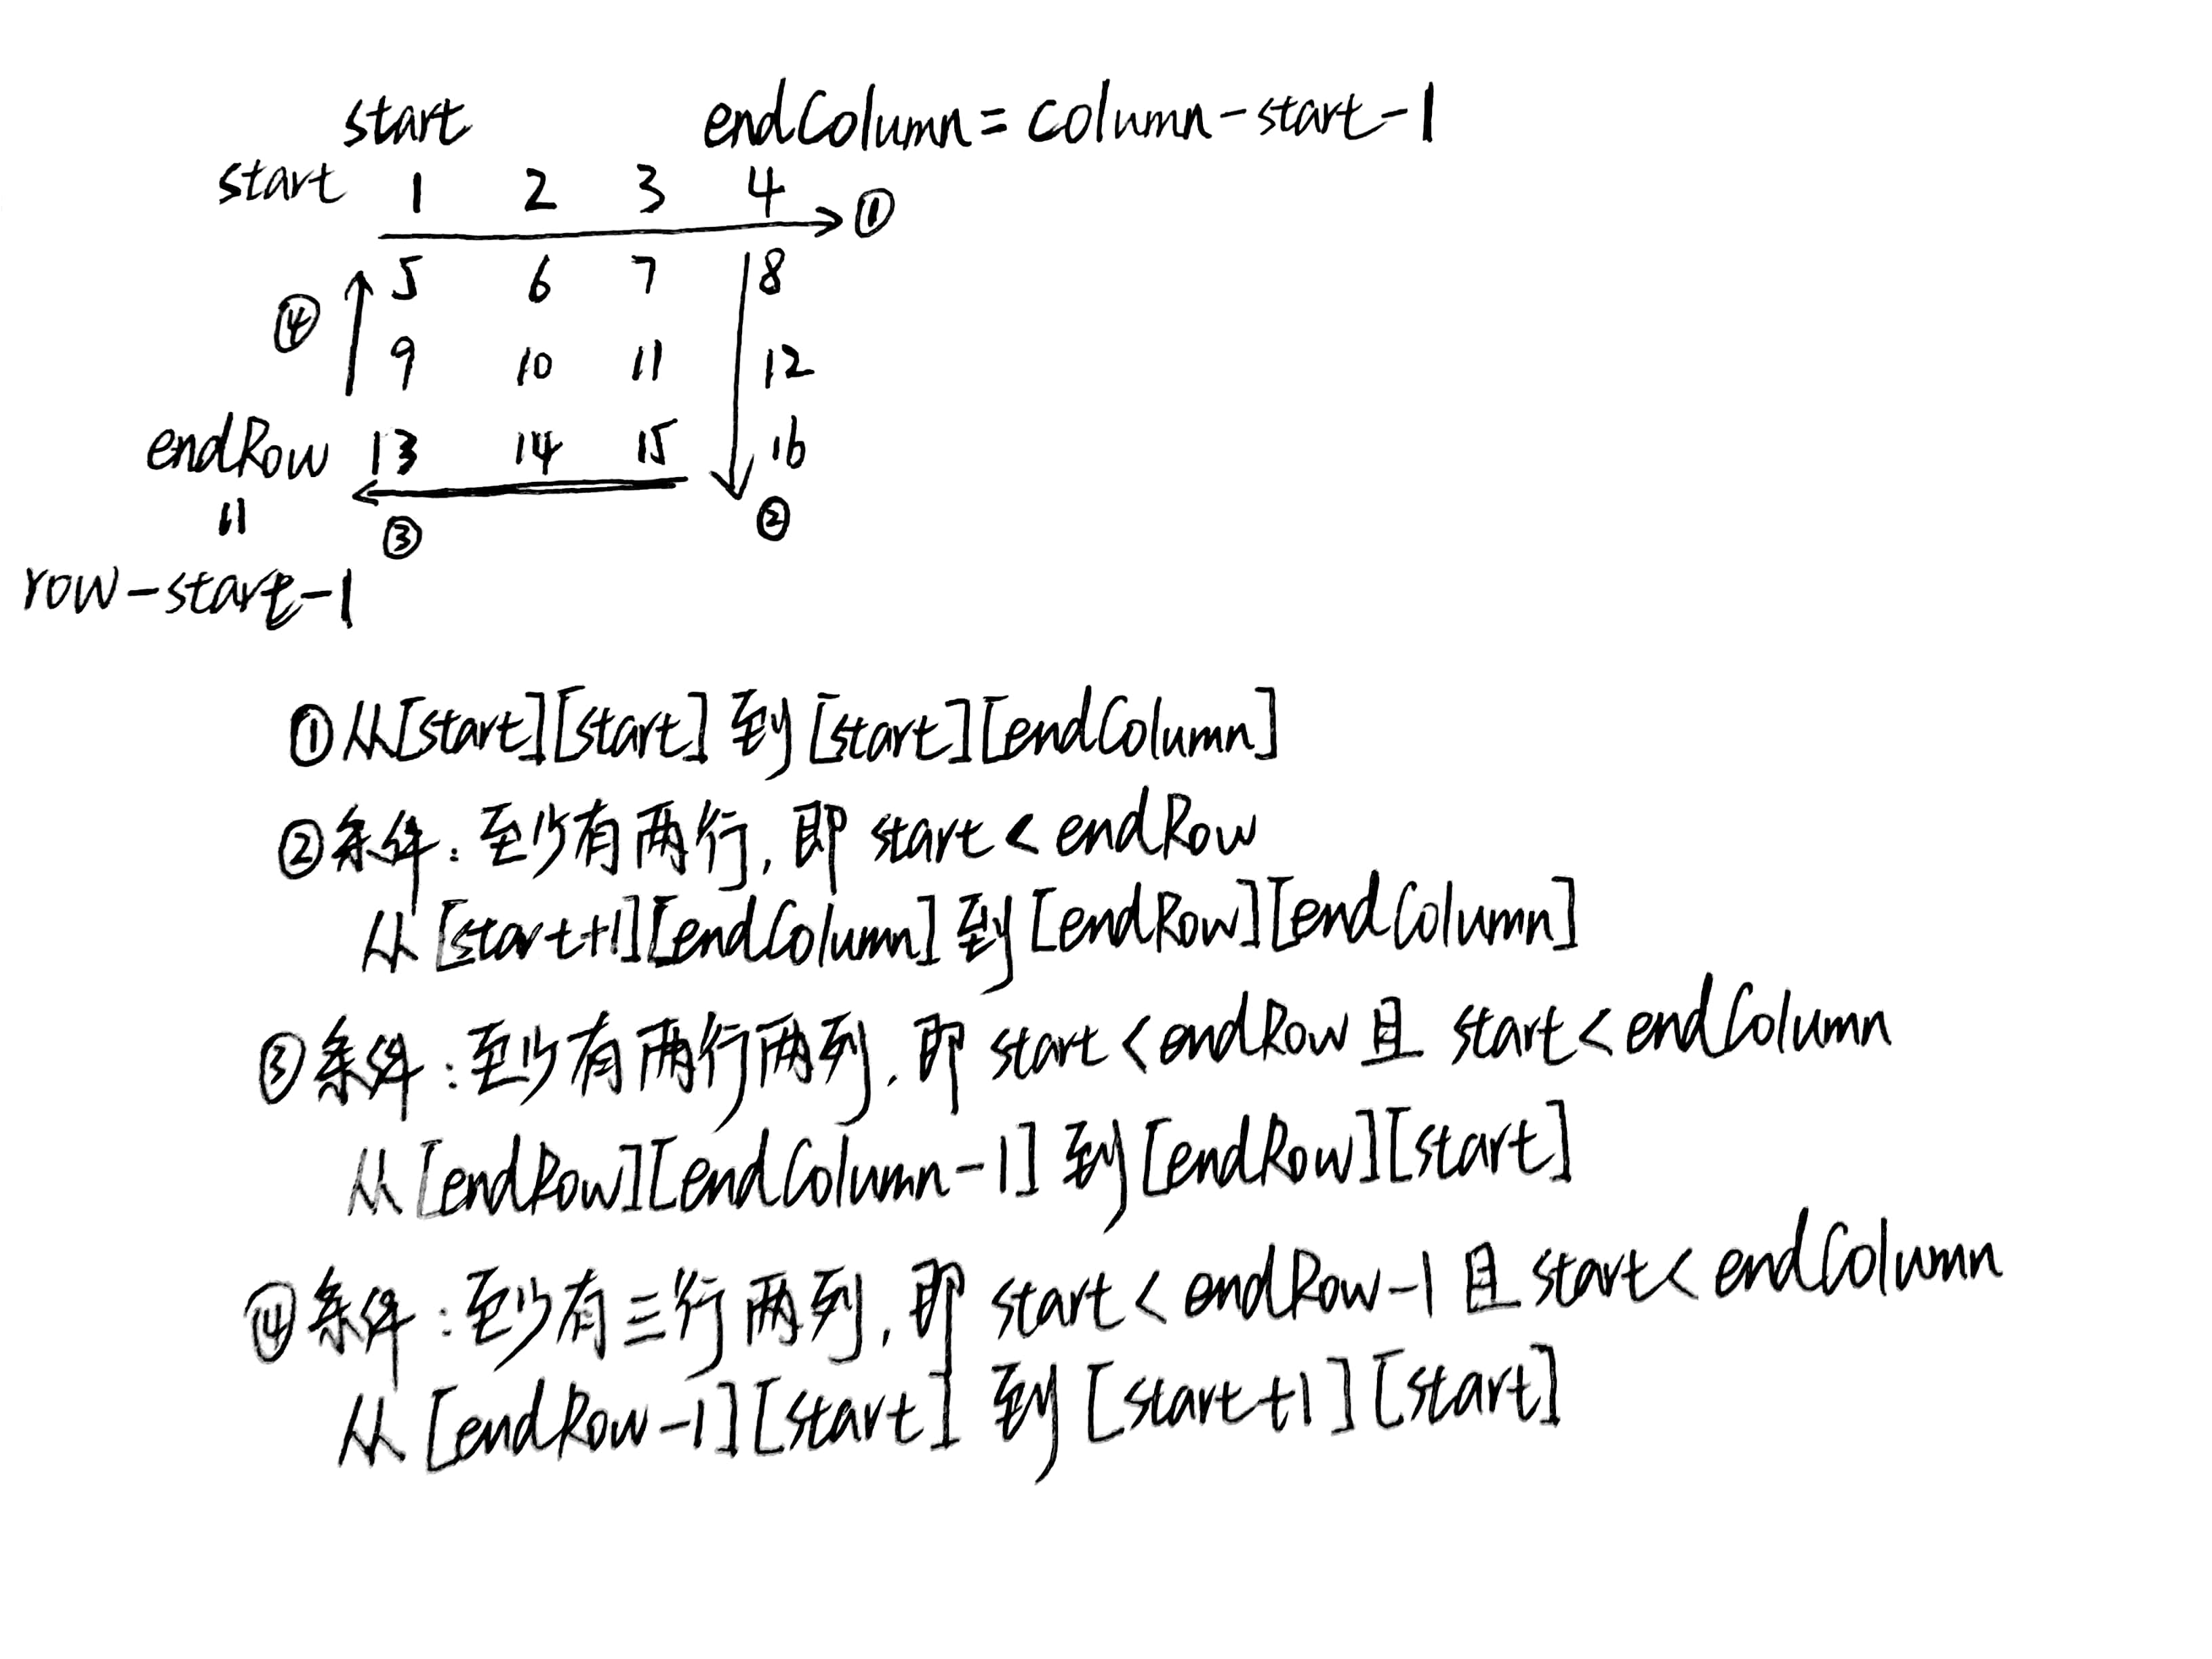 start endColumn=column-start-1
start 1 2 3 4
①
5 6 7 8
④
9 10 11 12
endRow 13 14 15 16
=
③ ②
row-start-1
①从[start][start]到[start][endColumn]
②条件:至少有两行,即 start<endRow
从[start+1][endColumn]到[endRow][endColumn]
③条件:至少有两行两列,即 start<endRow且 start<endColumn
从[endRow][endColumn-1]到[endRow][start]
④条件:至少有三行两列,即 start<endRow-1且start<endColumn
从[endRow-1][start]到[start+1][start]